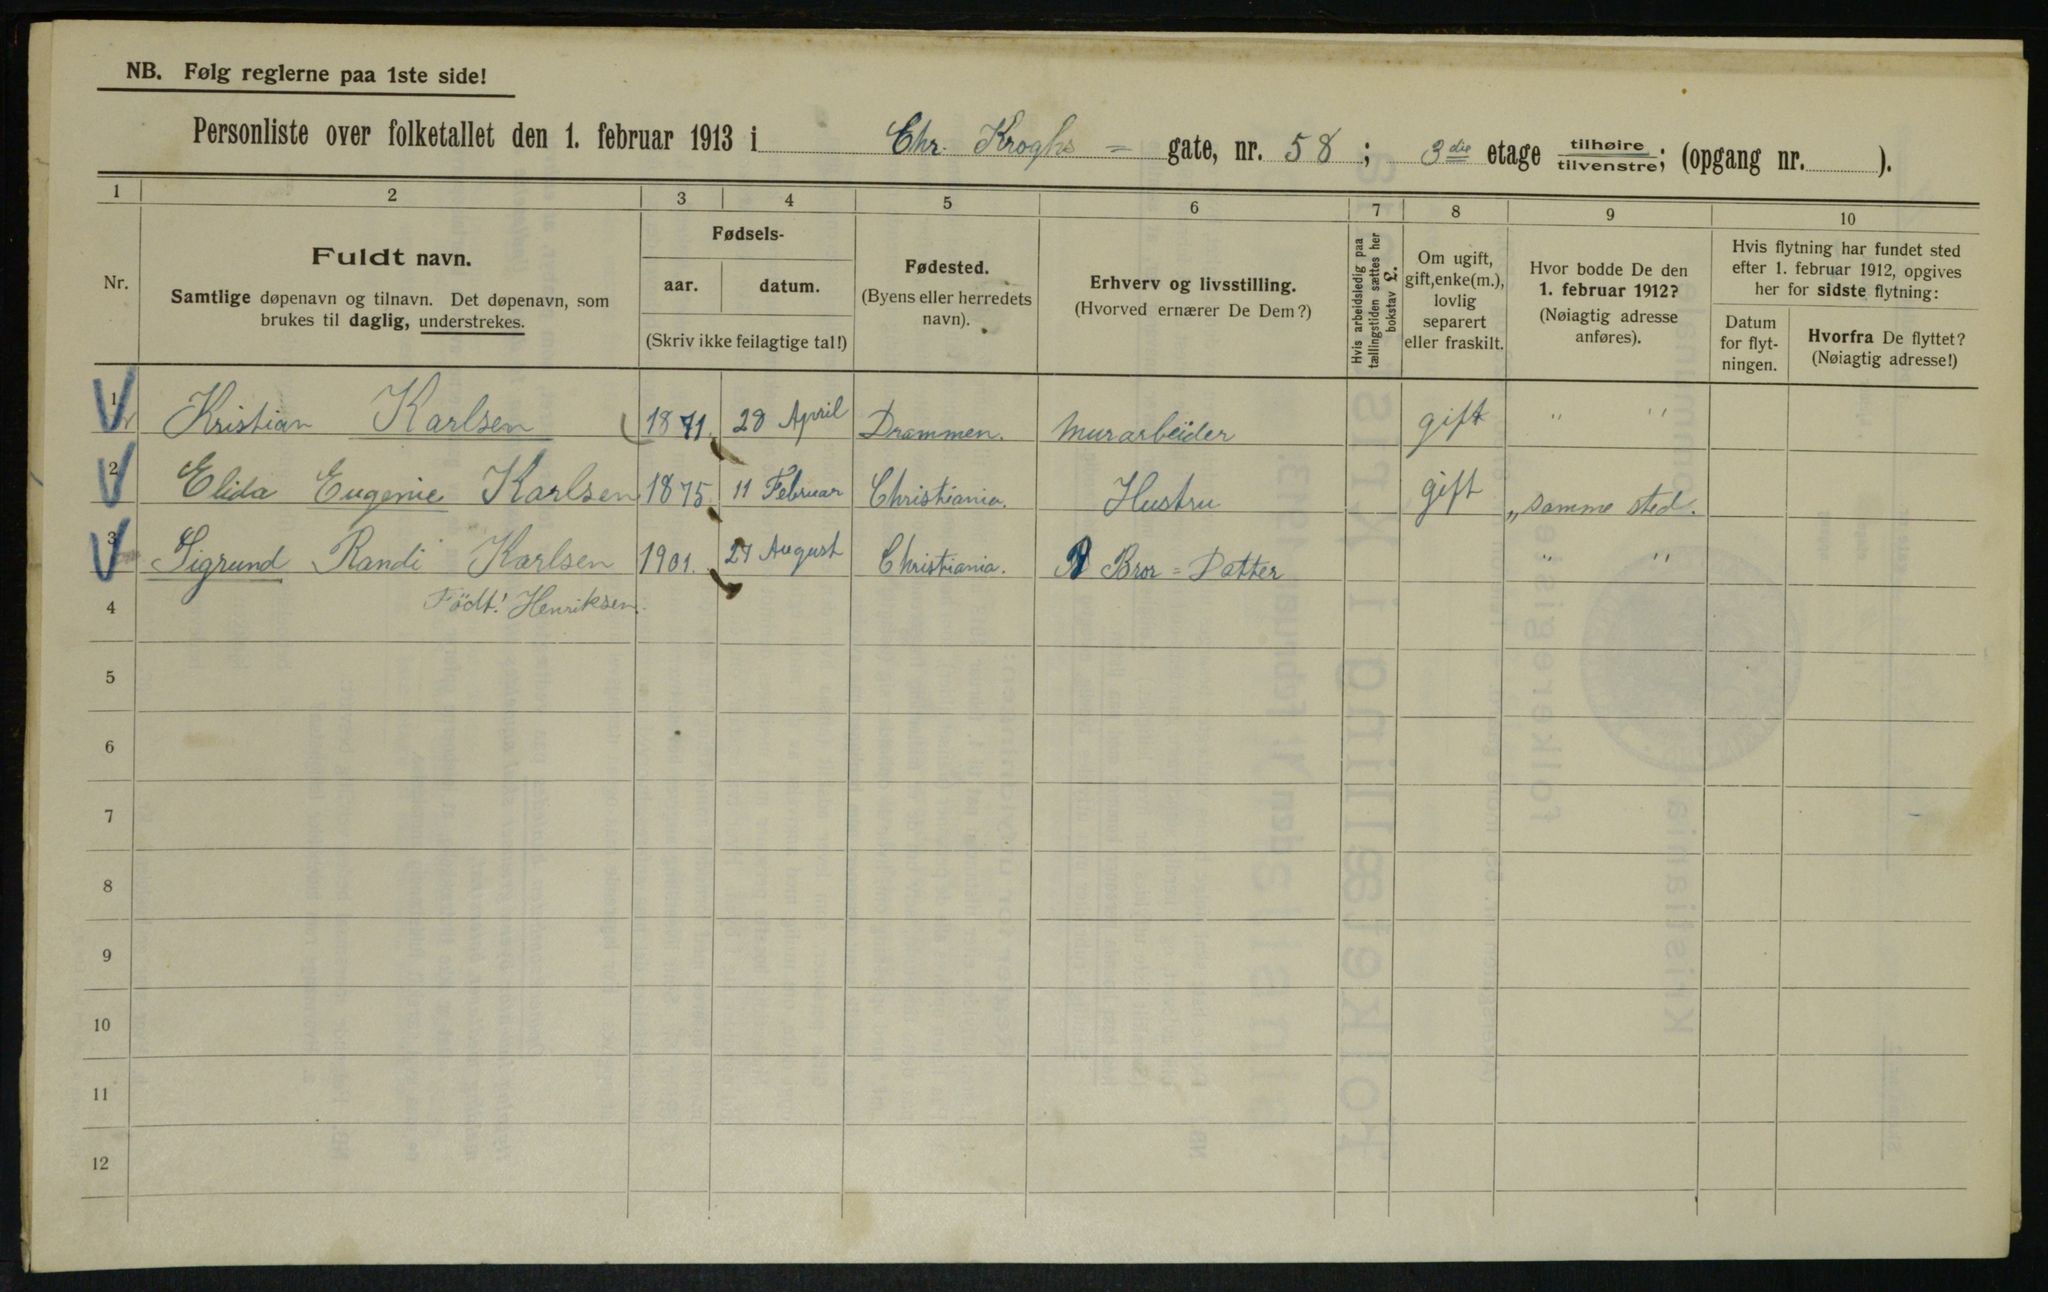 NB. Følg reglerne paa 1ste side!
Personliste over folketallet den 1. februar 1913 i Chr. Kroghs = gate, nr. 58 ; 3die etage tilhøire/tilvenstre; (opgang nr. ).
1 2 3 4 5 6 7 8 9 10
Nr.
Fuldt navn.
Samtlige døpenavn og tilnavn. Det døpenavn, som
brukes til daglig, understrekes.
Fødsels-
aar. datum.
(Skriv ikke feilagtige tal!)
Fødested.
(Byens eller herredets
navn).
Erhverv og livsstilling.
(Hvorved ernærer De Dem?)
Hvis arbeidsledig paa
tællingstiden sættes her
bokstav L.
Om ugift,
gift, enke(m.),
lovlig
separert
eller fraskilt.
Hvor bodde De den
1. februar 1912?
(Nøiagtig adresse
anføres).
Hvis flytning har fundet sted
efter 1. februar 1912, opgives
her for sidste flytning:
Datum
for flyt-
ningen.
Hvorfra De flyttet?
(Nøiagtig adresse!)
1 Kristian Karlsen 1871. 28 April Drammen. Murarbeider gift " "
2 Elida Eugenie Karlsen 1875. 11 Februar Christiania. Hustru gift " samme sted.
3 Sigrund Randi Karlsen 1901. 27 August Christiania. Bror = Datter " "
4 Födt! Henriksen.
5
6
7
8
9
10
11
12